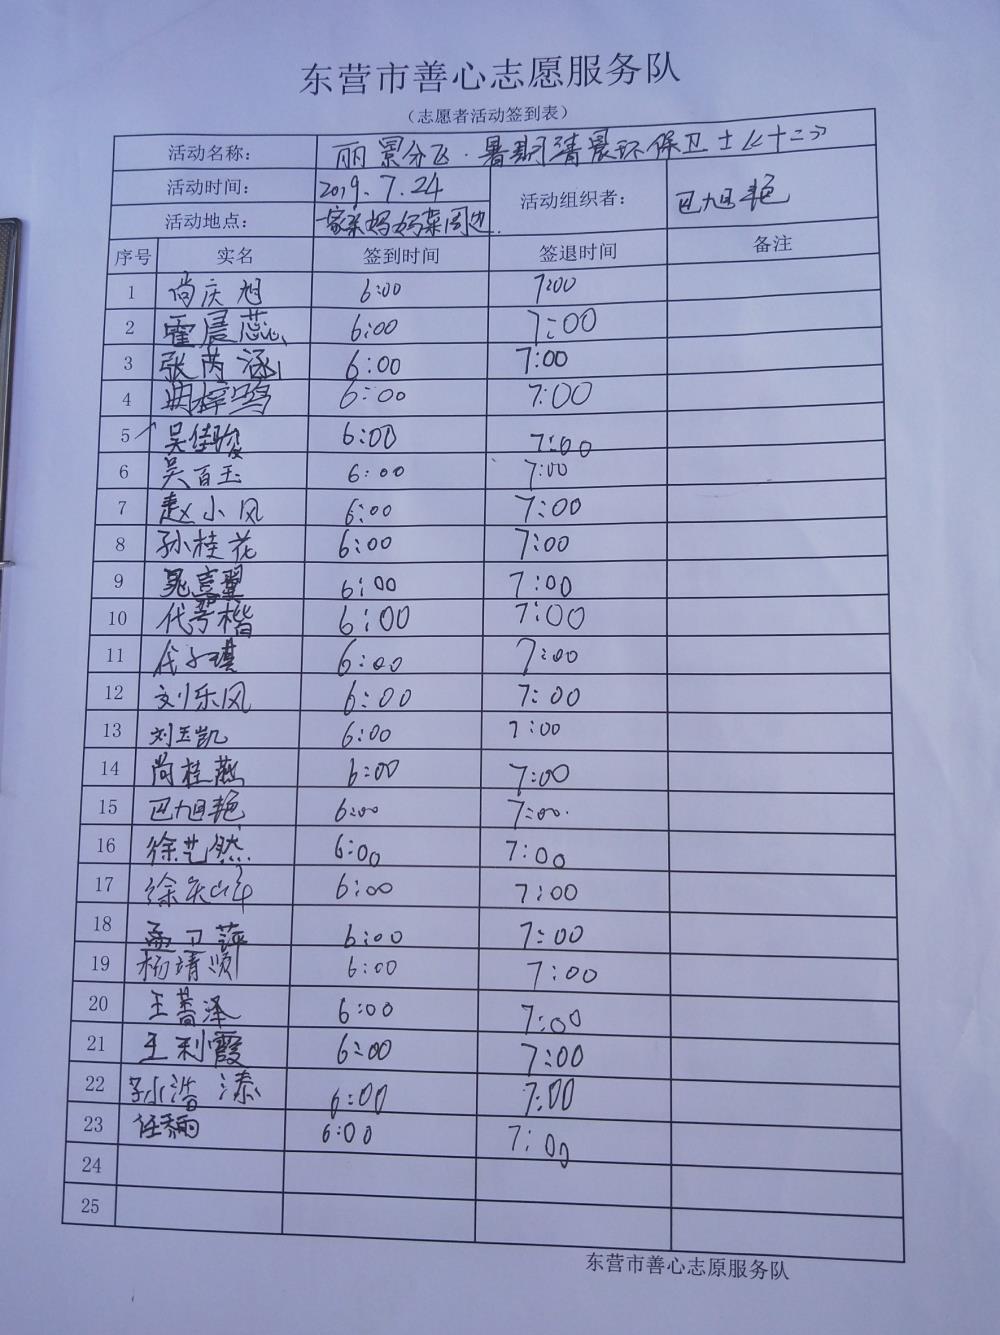 东营市善心志愿服务队
(志愿者活动签到表)
活动名称: 丽景分飞·暑期清晨环保卫士《十二》
活动时间: 2019.7.24 活动组织者: 巴旭艳
活动地点: 家妈妈菜周边.
序号 实名 签到时间 签退时间 备注
1 尚庆旭 6:00 7:00
2 霍晨蕊 6:00 7:00
3 张芮涵 6:00 7:00
4 梓鸣 6:00 7:00
5 吴佳骏 6:00 7:00
6 吴百玉 6:00 7:00
7 赵小凤 6:00 7:00
8 孙桂花 6:00 7:00
9 翼 6:00 7:00
10 代楷 6:00 7:00
11 代子琪 6:00 7:00
12 刘乐风 6:00 7:00
13 刘玉凯 6:00 7:00
14 尚桂燕 6:00 7:00
15 巴旭艳 6:00 7:00.
16 徐艺然 6:00 7:00
17 徐 6:00 7:00
18 孟卫萍 6:00 7:00
19 杨靖颂 6:00 7:00
20 王蔷泽 6:00 7:00
21 王利霞 6:00 7:00
22 孙浩溱 6:00 7:00
23 任 6:00 7:00
24
25
东营市善心志原服务队